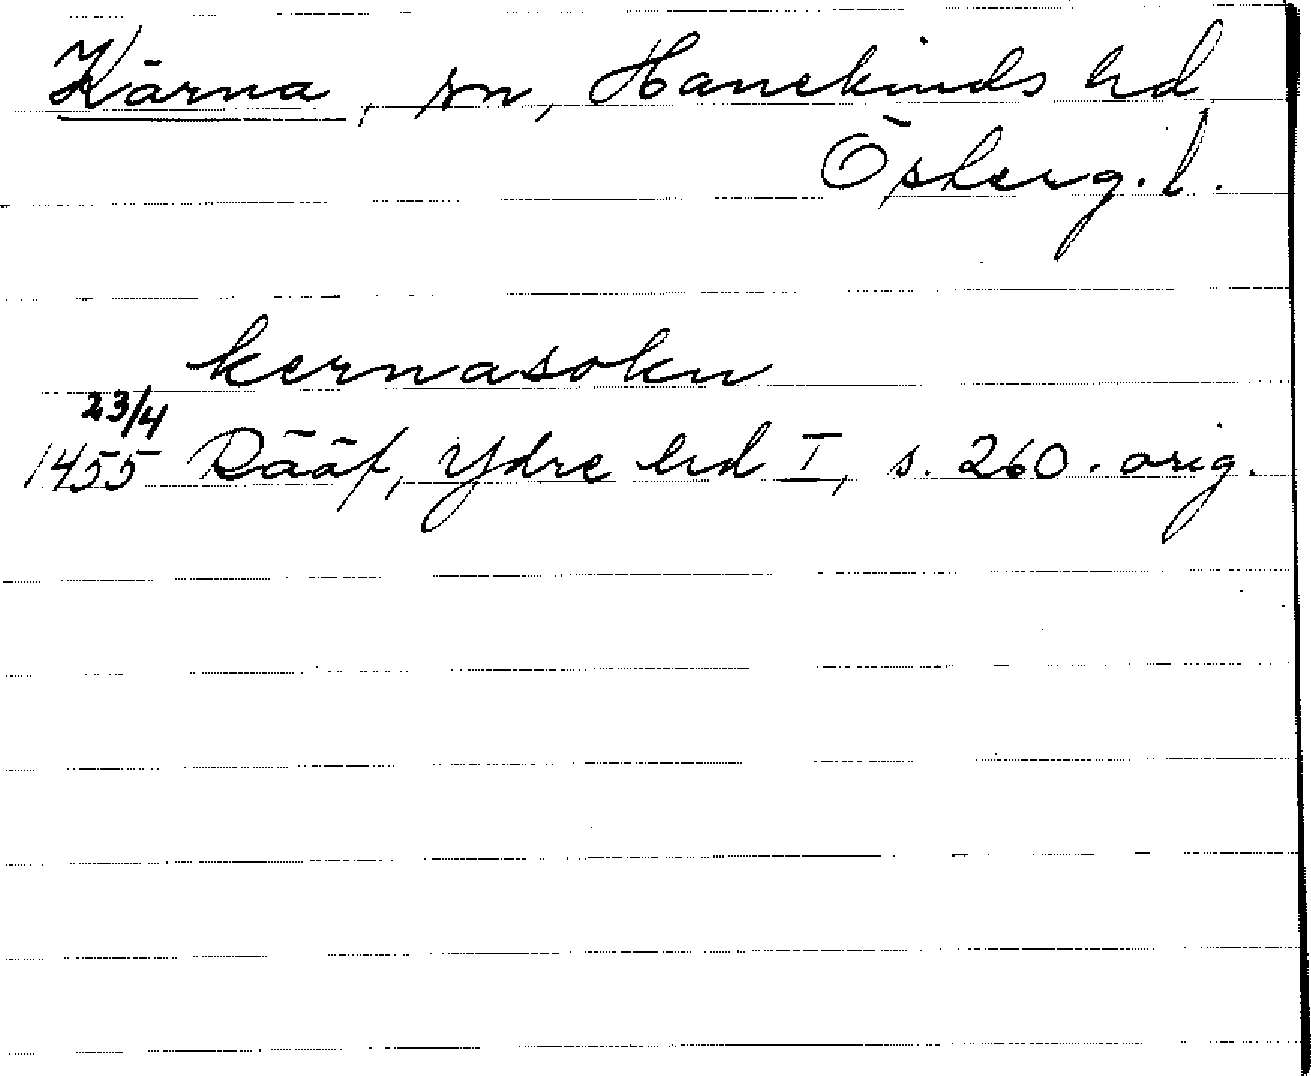 Kärna, sn, Hanekinds hd
Österg. l.
kernasokn
23/4
1455 Rääf, Ydre hd I, s. 260. orig.